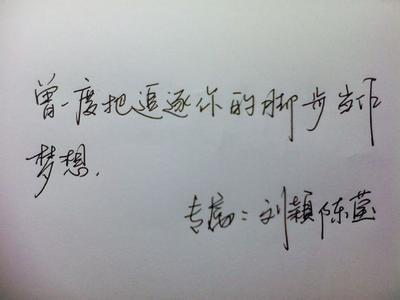 曾一度把追逐你的脚步当作
梦想.
专属:刘颖陈莹